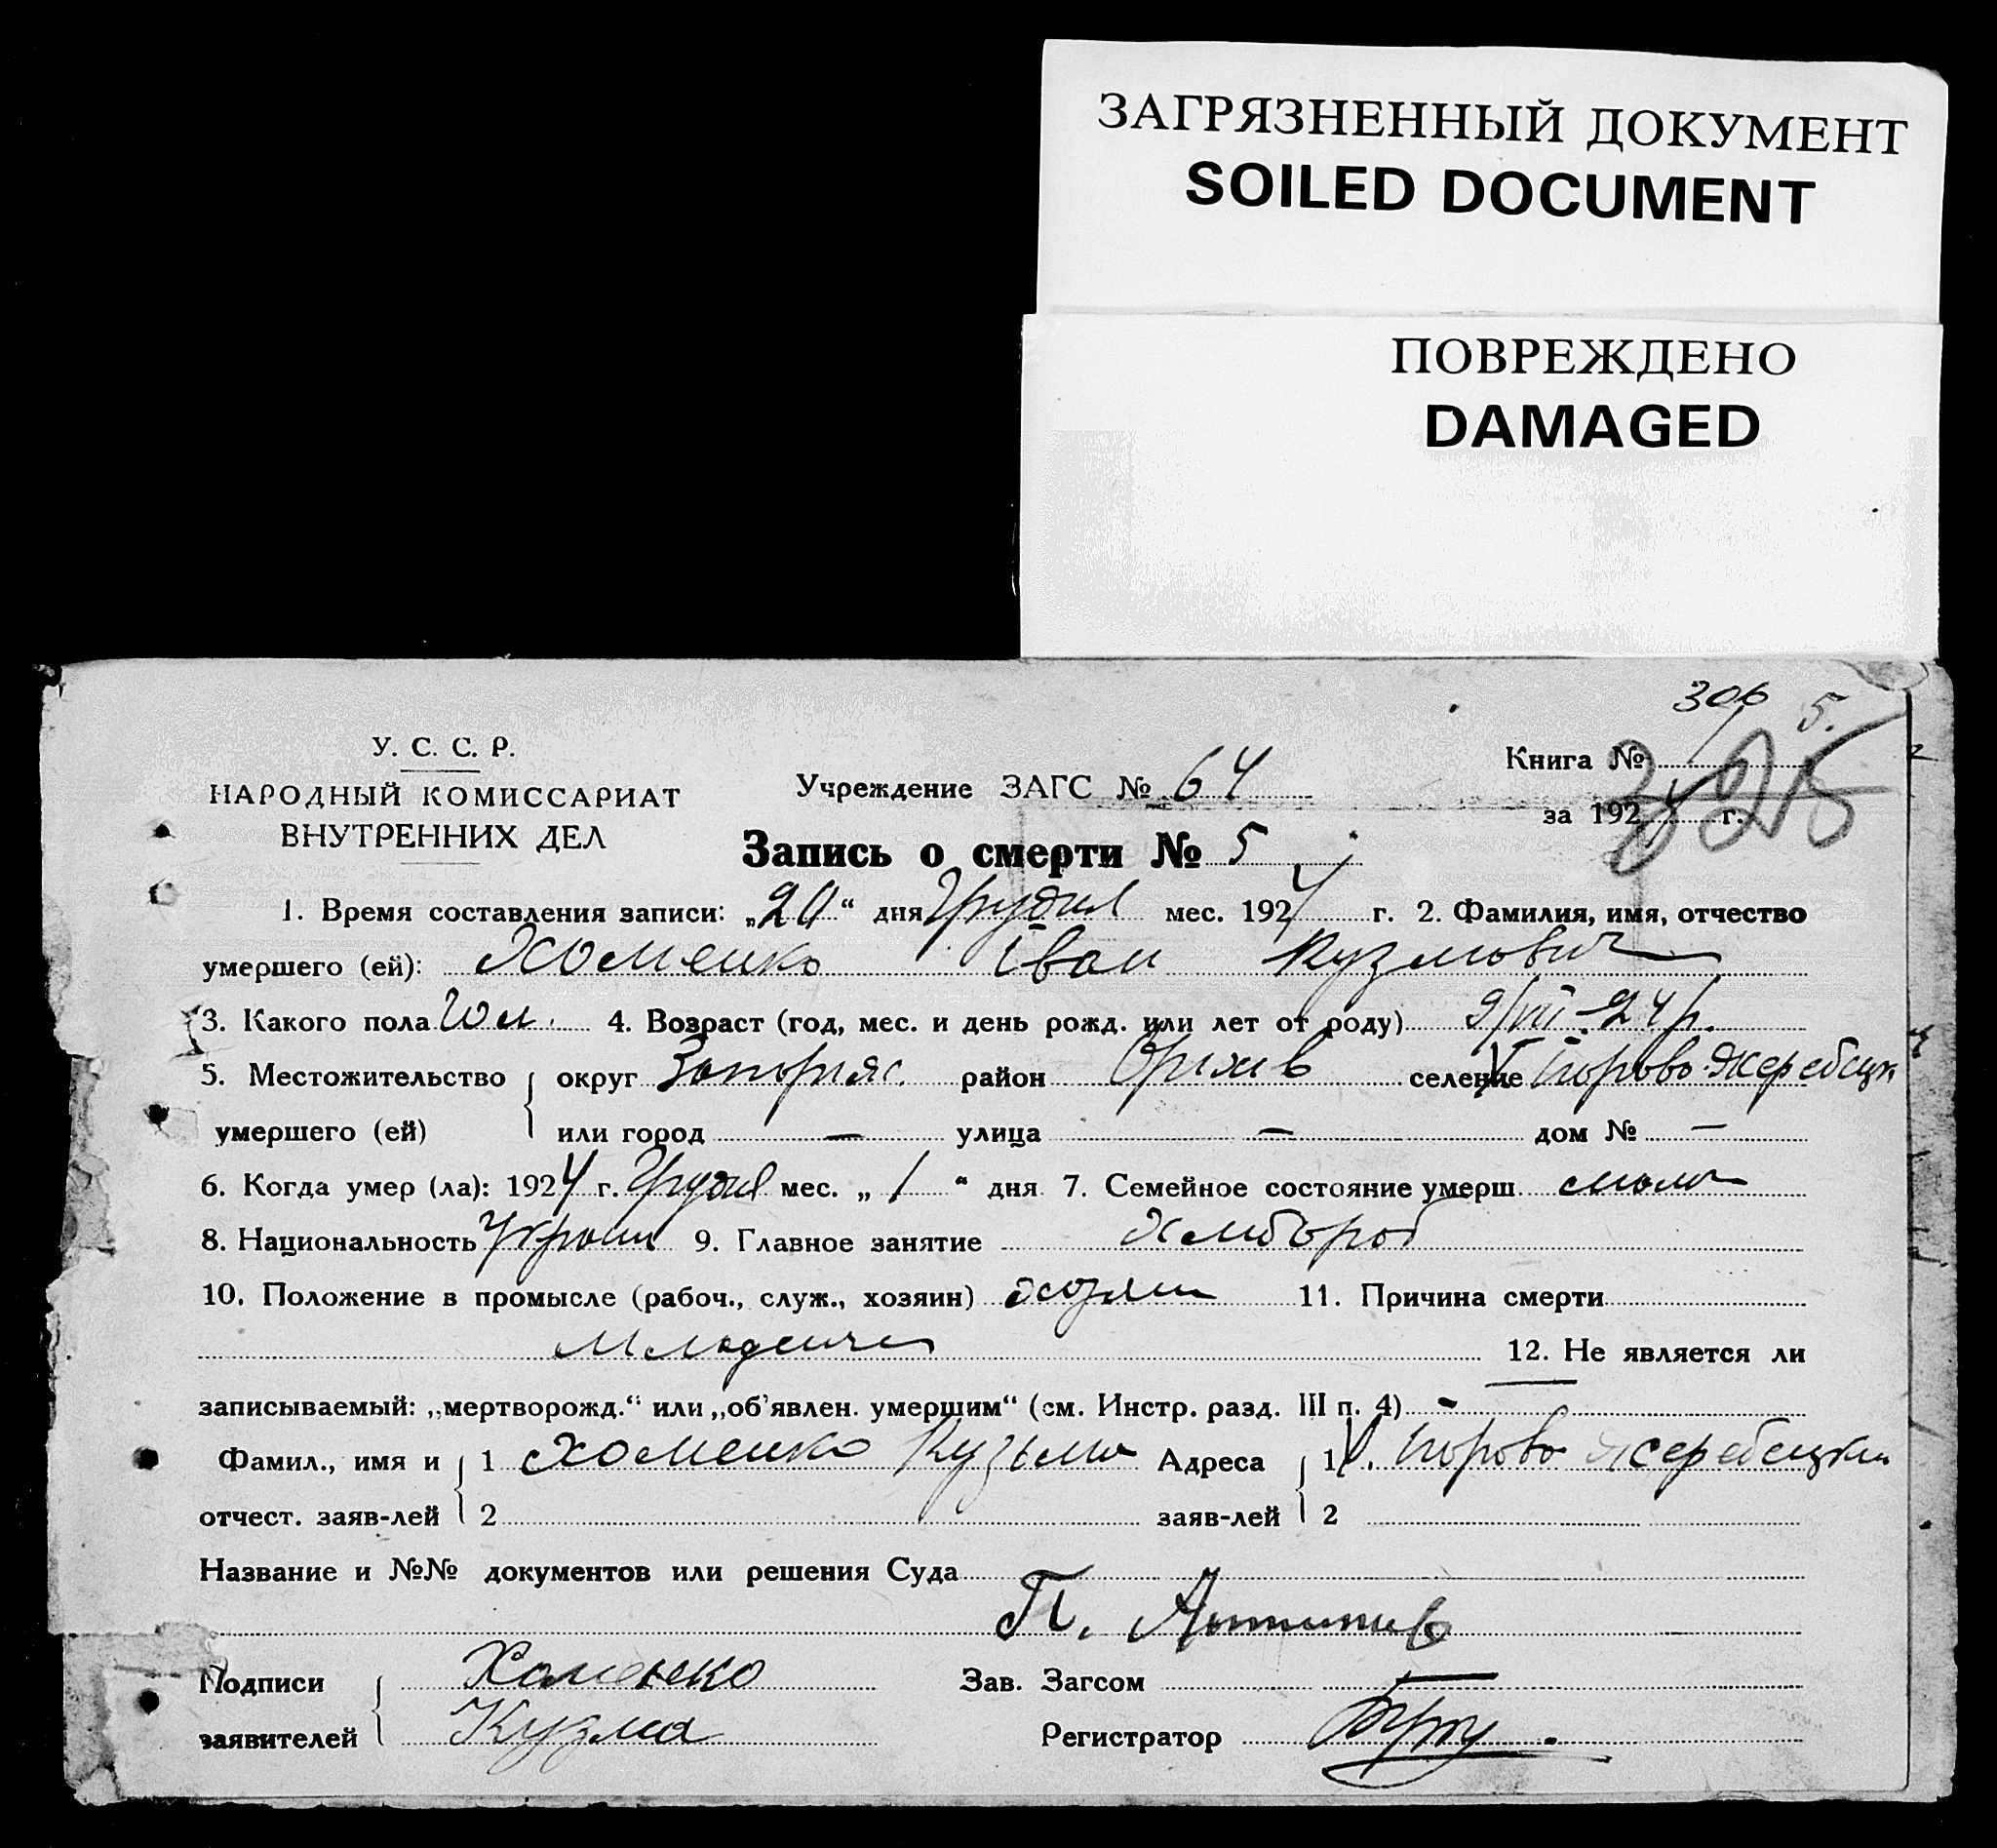 ЗАГРЯЗНЕННЫЙ ДОКУМЕНТ
SOILED DOCUMENT
ПОВРЕЖДЕНО
DAMAGED
306 5.
У. С. С. Р.
Книга №
325
НАРОДНЫЙ КОМИССАРИАТ
ВНУТРЕННИХ ДЕЛ
Учреждение ЗАГС № 64
за 1924 г.
Запись о смерти № 5
1. Время составления записи: „20“ дня Грудня мес. 1924 г. 2. Фамилия, имя, отчество
умершего (ей): Хоменко Іван Кузмович
3. Какого пола Чол. 4. Возраст (год, мес. и день рожд. или лет от роду) 9/VIII-24 р.
5. Местожительство округ Запоріж. район Оріхів селение Юрово-Жеребецк
умершего (ей) или город — улица — дом № —
6. Когда умер (ла): 1924 г. Грудня мес. „1“ дня 7. Семейное состояние умерш.
8. Национальность Украин 9. Главное занятие Хлібороб
10. Положение в промысле (рабоч., служ., хозяин) хозяин 11. Причина смерти
Младенче 12. Не является ли
записываемый: „мертворожд.“ или „об'явлен. умершим“ (см. Инстр. разд. III п. 4) -
Фамил., имя и 1 Хоменко Кузьма Адреса 1 Юрово Жеребецки
отчест. заяв-лей 2 заяв-лей 2
Название и №№ документов или решения Суда
П.
Подписи Хоменко Зав. Загсом
заявителей Кузма Регистратор